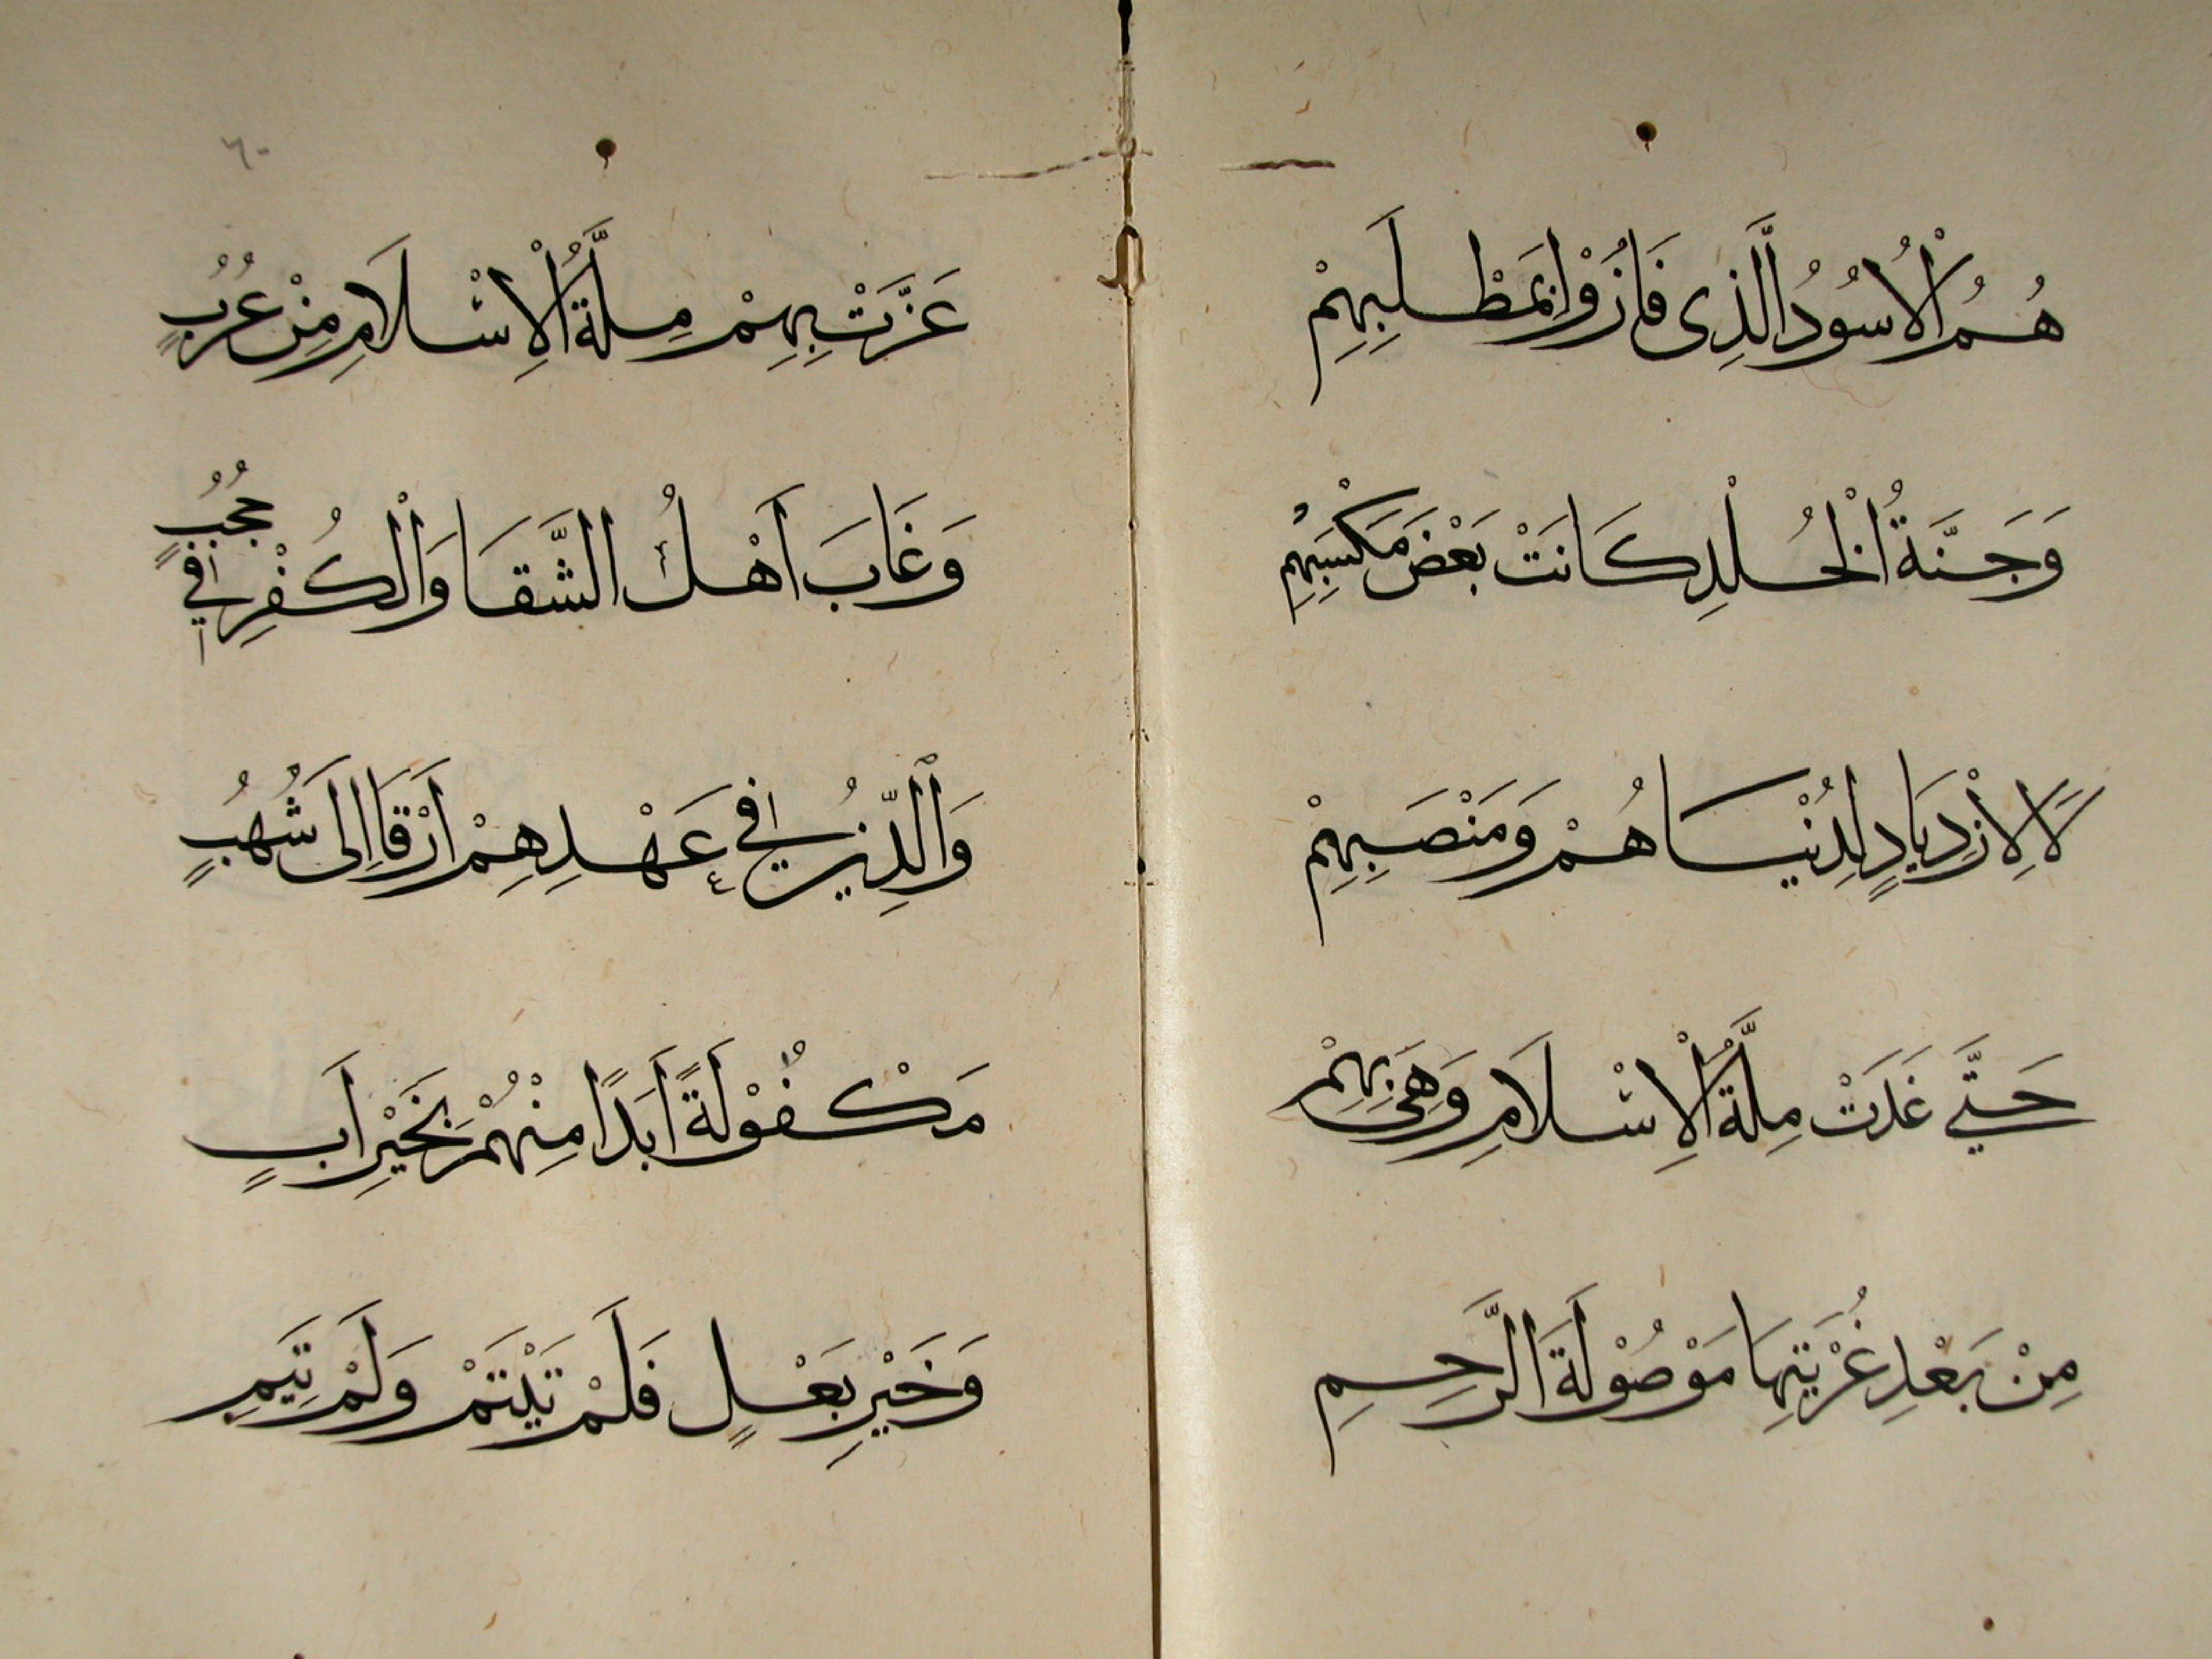 هُمُ الْاُسُوْدُ الَّذِى فَازُوْا بِمَطْلَبِهِمْ
وَجَنَّةُ الْخُلْدِ كَانَتْ بَعْضَ مَكْسَبِهِمْ
لَا لِازْدِيَادٍ لِدُنْيَا هُمْ وَمَنْصَبِهِمْ
حَتَّى غَدَتْ مِلَّةُ الْاِسْلَامِ وَهِىَ بِهِمْ
مِنْ بَعْدِ غُرْبَتِهَا مَوْصُوْلَةَ الرَّحِمِ
٦٠
عَزَّتْ بِهِمْ مِلَّةُ الْاِسْلَامِ مِنْ عُرُبٍ
وَغَابَ اَهْلُ الشَّقَا وَالْكُفْرِ فِى حُجُبٍ
وَالدِّيْنُ فِى عَهْدِهِمْ اَرْقَا اِلَى شُهُبٍ
مَكْفُوْلَةً اَبَدًا مِنْهُمْ بِخَيْرِ اَبٍ
وَخَيْرِ بَعْلٍ فَلَمْ تَيْتَمْ وَلَمْ تَئِمِ